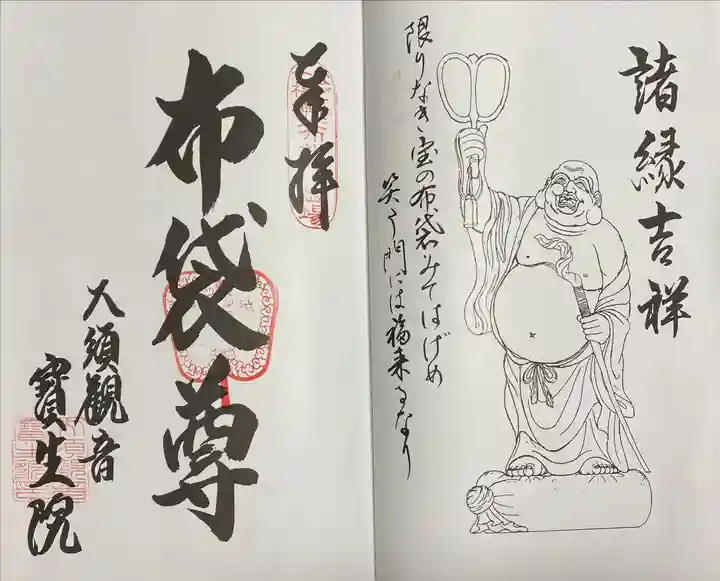 諸縁吉祥
限りなき宝の布袋みてはげめ
笑う門には福来るなり
奉拝
布袋尊
大須観音
寳生院